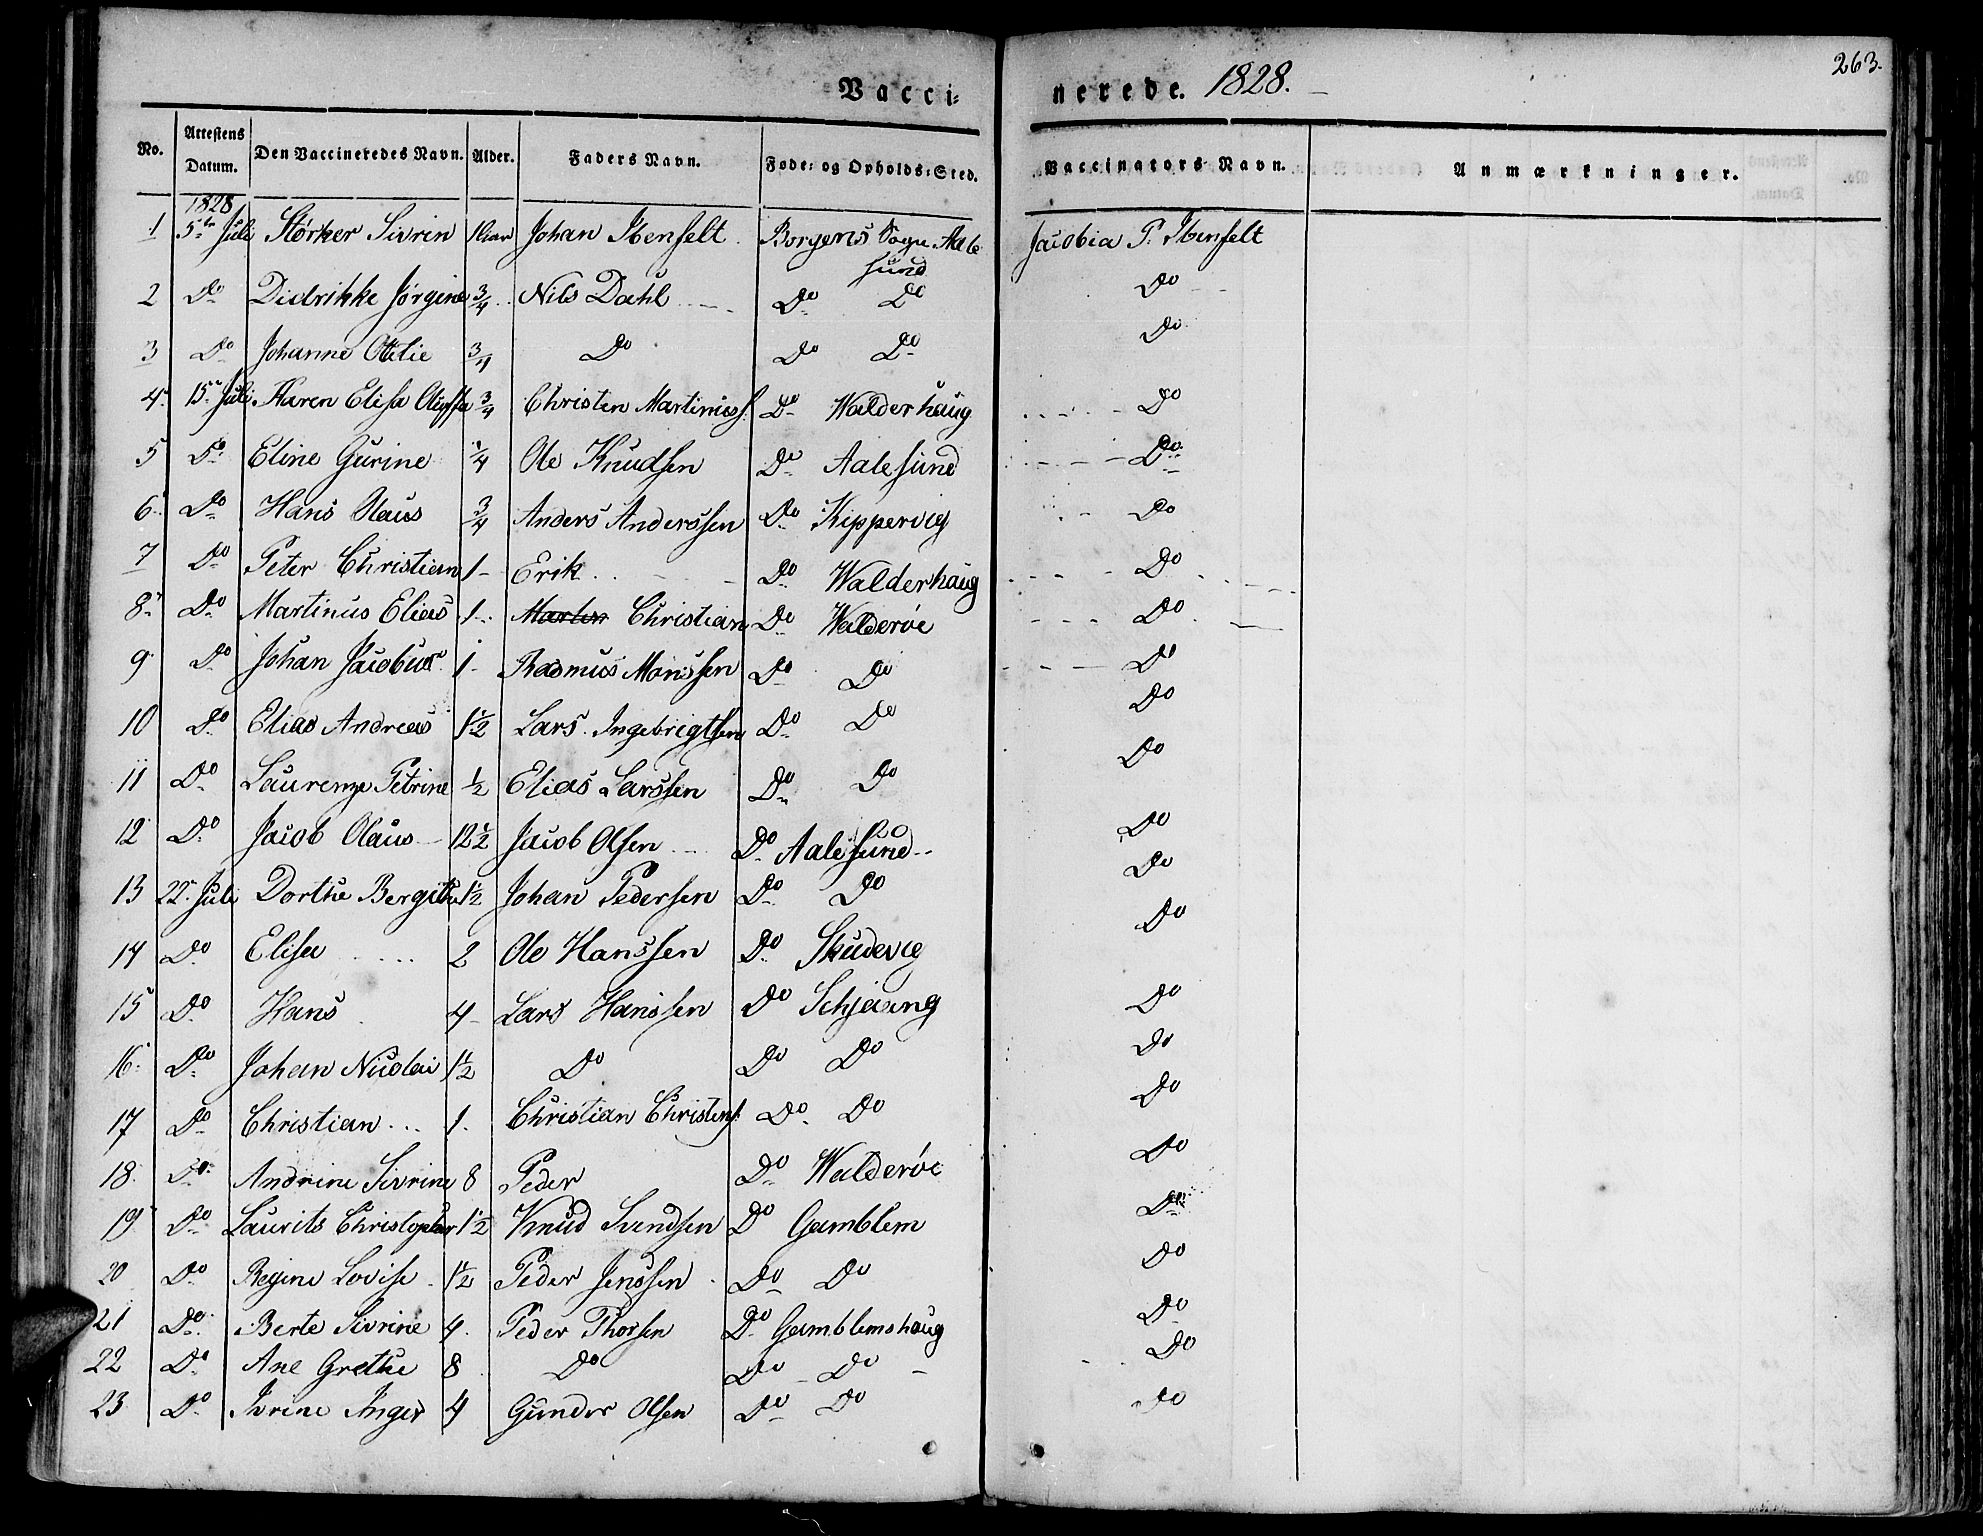 263.
Vacci- nerede. 1828.
No. Attestens Datum. Den Vaccineredes Navn. Alder. Faders Navn. Føde- og Opholds-Sted. Vaccinators Navn. Anmærkninger.
1828
1 5te Juli Størker Sivrin 1 Johan Ibenfelt Borgens Sogn Aale Jacobia P. Ibenfelt
sund
2 Do Didrikke Jørgine 3/4 Nils Dahl Do Do Do
3 Do Johanne Otelie 3/4 Do Do Do Do
4 15 Juli Karen Elisa 3/4 Christen Martinuss. Do Walderhaug Do
5 Do Eline Gurine 1/4 Ole Knudsen Do Aalesund Do
6 Do Hans Olaus 3/4 Anders Anderssen Do Kippervig Do
7 Do Peter Christian 1 Erik Do Walderhaug Do
8 Do Martinus Elias 1 Christian Do Walderøe Do
9 Do Johan Jacobus 1 Rasmus Monssen Do Do Do
10 Do Elias Andreas 1 1/2 Lars Ingebrigtsen Do Do Do
11 Do Laurenze Petrine 1/2 Elias Larssen Do Do Do
12 Do Jacob Olaus 12 1/2 Jacob Olsen Do Aalesund Do
13 22 Juli Dorthe Bergithe 1 1/2 Johan Pedersen Do Do Do
14 Do Elisa 2 Ole Hanssen Do Skudevig Do
15 Do Hans 4 Lars Hanssen Do Schjaang Do
16 Do Johan Nicolai 1 1/2 Do Do Do Do
17 Do Christian 1 Christian Christens. Do Do Do
18 Do Andrine Sivrine 8 Peder Do Walderøe Do
19 Do Laurits Christopher 1 1/2 Knud Svendsen Do Gamblem Do
20 Do Regine Lovise 1 1/2 Peder Jenssen Do Do Do
21 Do Berte Sivrine 4 Peder Thorsen Do Gamblemshaug Do
22 Do Ane Grethe 8 Do Do Do Do
23 Do Ivrine Inger 4 Gunder Olsen Do Do Do